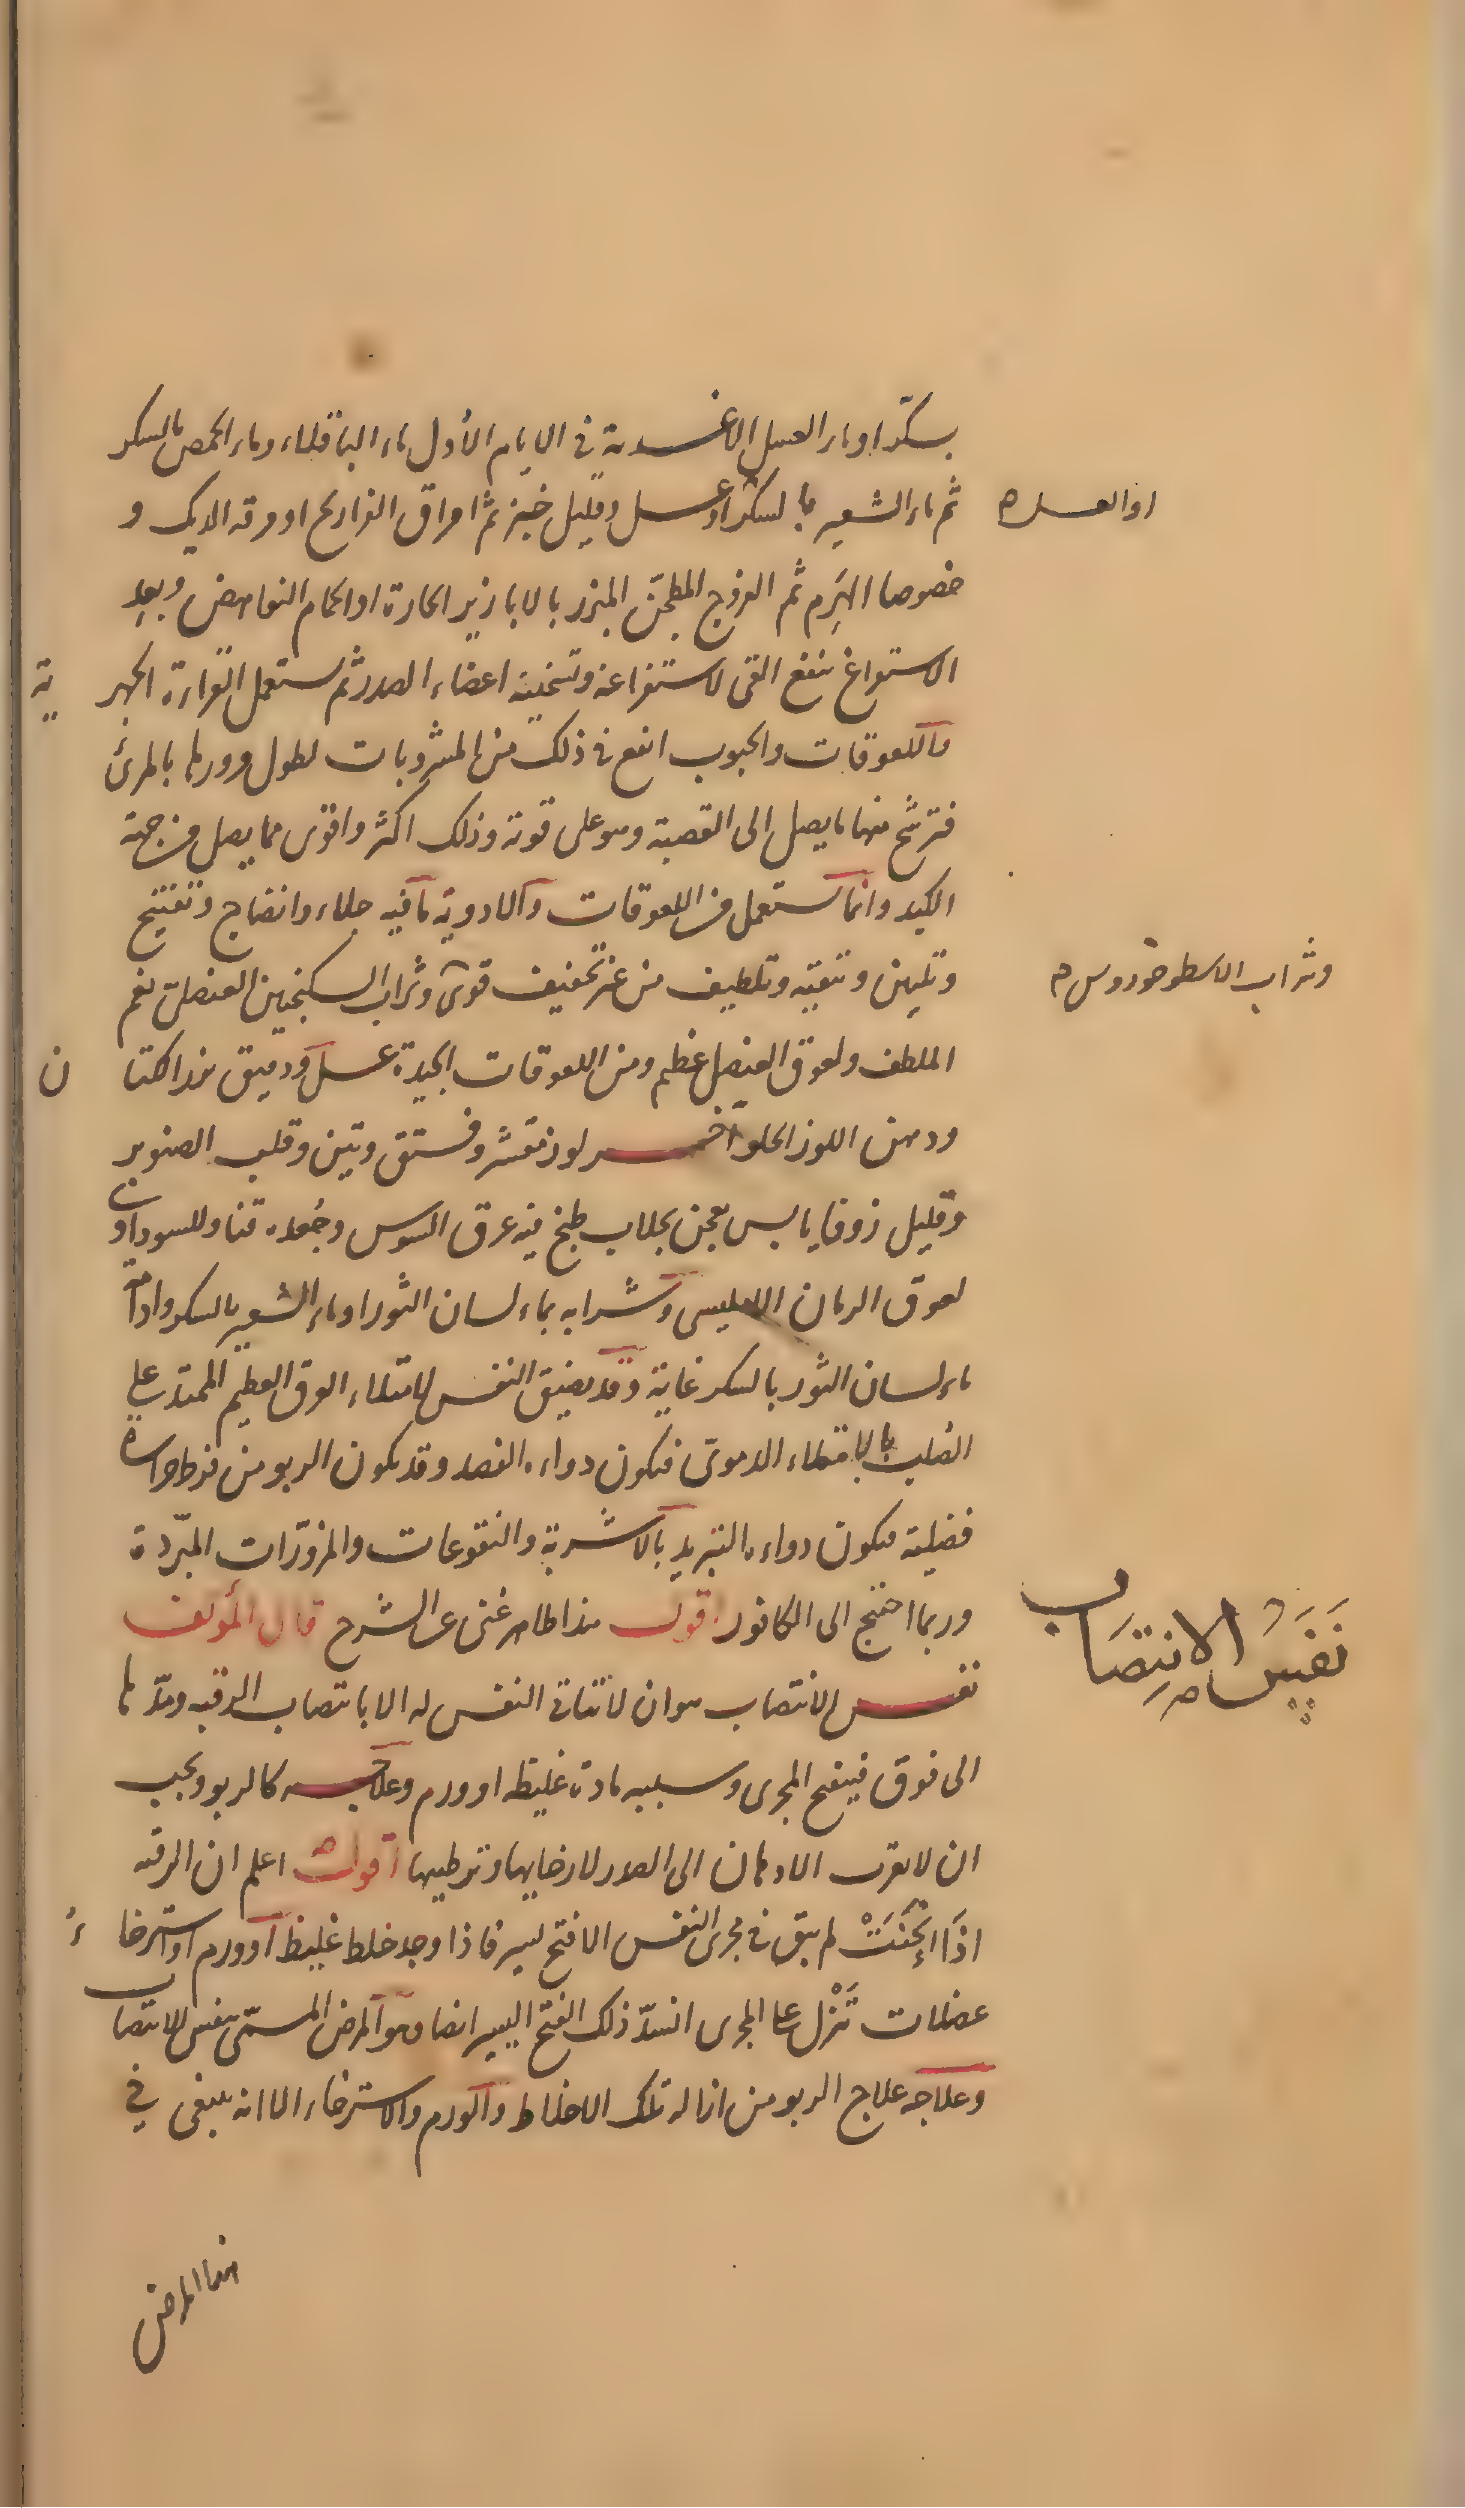 بسكر او ماء العسل الاغذية في الايام الاُوَل ماء الباقلاء وماء الحمص بالسكر
ثم ماء الشعير بالسكر او عسل وقليل خبز ثم امراق الفراريج او مرقة الديك و
او العسل
خصوصا الهَرِم ثم الفروج المطجّن المبزر بالابازير الحارة او الحمام النواهض وبعد
الاستفراغ ينفع القى لاستفراغه وتسخينه اعضاء الصدر ثم يستعمل القراءة الجهرية
واللعوقات والحبوب انفع في ذلك من المشروبات لطول مرورها بالمرئ
فترشح منها ما يصل الى القصبة وهو على قوته وذلك اكثر واقوى مما يصل من جهة
الكبد وانما يستعمل من اللعوقات والادوية ما فيه جلاء وانضاج وتفتيح
وتليين وتنقية وتلطيف من غير تجفيف قوى وشراب السكنجبين العنصلى نعم
وشراب الاسطوخودوس
الملطف ولعوق العنصل عظيم ومن اللعوقات الجيدة عسل ودقيق بزر الكتان
ودهن اللوز الحلو آخر لوز مقشر وفستق وتين وقلب الصنوبر
وقليل زوفا يابس يعجن بجلاب طبخ فيه عرق السوس وجُعدة قنا وللسوداوى
لعوق الرمان الامليسى وشرابه بماء لسان الثور او ماء الشعير بالسكر وادامة
ماء لسان الثور بالسكر غاية وقد يضيق النفس لامتلاء العرق العظيم الممتد على
الصُلب بالامتلاء الدموىّ فيكون دواءه الفصد وقد يكون الربو من فرط حرارة
فضلية فيكون دواءه التبريد بالاشربة والنقوعات والمزوّرات المبرّدة
وربما احتيج الى الكافور اقول هذا ظاهر غنى عن الشرح قال المؤلف
نَفَسُ الانتِصَاب
نفس الانتصاب هو ان لا يتاتى النفس له الا بانتصاب الرقبه ومدّها
الى فوق فينفتح المجرى وسببه مادة غليظه او ورم وعلاجه كالربو ويجب
ان لا يقرب الادهان الى الصدر لارخايها وترطيبها اقول اعلم ان الرقبه
اذا اِنْحَنَتْ لم يبق في مجرى النفس الا فتح يسير فاذا وجد خلط غليظ او ورم او استرخاءُ
عضلات تَنْزل على المجرى انسدّ ذلك الفتح اليسير ايضا وهو المرض المسمّى بنفس الانتصاب
وعلاجه علاج الربو من ازالة تلك الاخلاط والورم والاسترخاء الا انه ينبغى في
هذا المرض